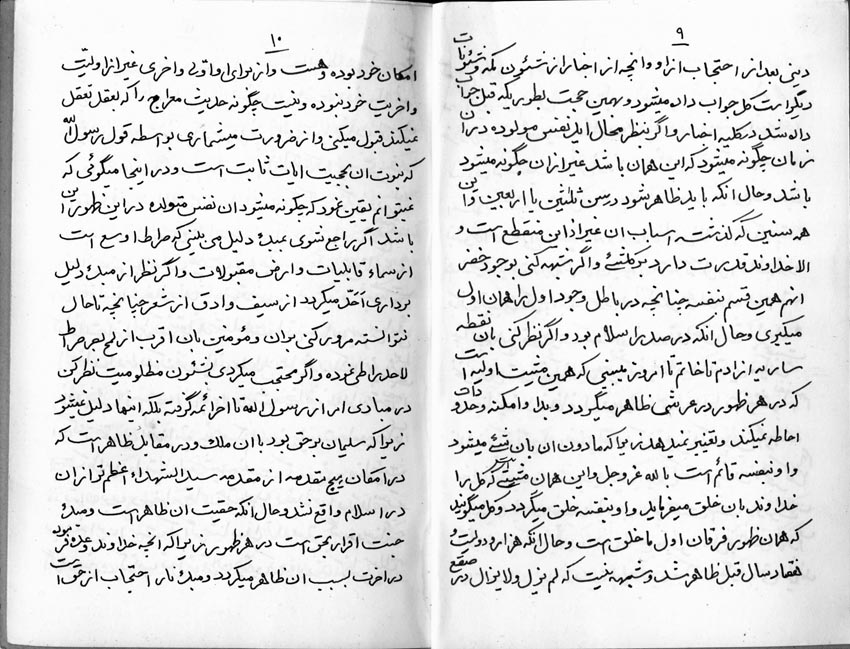 ٩
دینی بعد از احتجاب از او و انچه از اخبار از شئون کمه و شئونات
دیگر است کل جواب داده میشود و بهمین حجت بطوریکه قبل جواب
داده شد در کلیه اخبار و اگر بنظر محال اید نفس مولوده در ان
زمان چگونه میشود که این همان باشد غیر از ان چگونه میشود
باشد و حال انکه باید ظاهر شود در سن ثلثین یا اربعین و این
همه سنین که گذشته اسباب ان غیر از این منقطع است و
الا خداوند قدرت دارد بر کلشیء و اگر شبهه کنی بوجود خضر
انهم همین قسم بنفسه چنانچه در باطل وجود اول را همان اول
میگیری و حال انکه در صدر اسلام بود و اگر نظر کنی بان نقطه
ساریه از ادم تا خاتم تا امروز میبینی که همین مشیت اولیه است
که در هر ظهور در عرشی ظاهر میگردد و بدا و امکنه و حدودات
احاطه نمیکند و تغییر نمیدهد زیرا که مادون ان بان شیء میشود
و او بنفسه قائم است بالله عز و جل و این همان مشیتی است که کل را
خداوند بان خلق میفرماید و او بنفسه خلق میگردد و کل میگویند
که همان ظهور فرقان اول ما خلق است و حال انکه هزار و دویست و
هفتاد سال قبل ظاهر شد و شبهه نیست که لم یزل و لا یزال در صقع
١٠
امکان خود بوده و هست و از برای او اولی و اخری غیر از اولیت
و اخریت خود نبوده و نیست چگونه حدیث معراج را که بعقل تعقل
نمیکند قبول میکنی و از ضرورت میشماری بواسطه قول رسول الله
که نبوت ان بحجیت ایات ثابت است و در اینجا میگوئی که
نمیتوانم یقین نمود که چگونه میشود ان نفس متولده در این ظهور این
باشد اگر راجع شوی بمبدء دلیل می بینی که صراط اوسع است
از سماء قابلیات و ارض مقبولات و اگر نظر از مبدء دلیل
برداری احد میگردد از سیف و ادق از شعر چنانچه تا حال
نتوانسته مرور کنی بران و مؤمنین بان اقرب از لمح بصر صراط
لاحد را طی نموده و اگر محتجب میگردی بشئون مظلومیت نظر کن
در مبادی امر از رسول الله تا ائمه گرفته بلکه اینها دلیل نمیشود
زیرا که سلیمان بر حق بود با ان ملک و در مقابل ظاهر است که
در امکان هیچ مقدمه از مقدمه سید الشهداء اعظم تر از ان
در اسلام واقع نشد و حال انکه حقیت ان ظاهر است و مبدء
جنت اقرار بحق است در هر ظهور زیرا که انچه خداوند وعده فرموده
در اخرت بسبب ان ظاهر میگردد و مبدء نار احتجاب از حق است